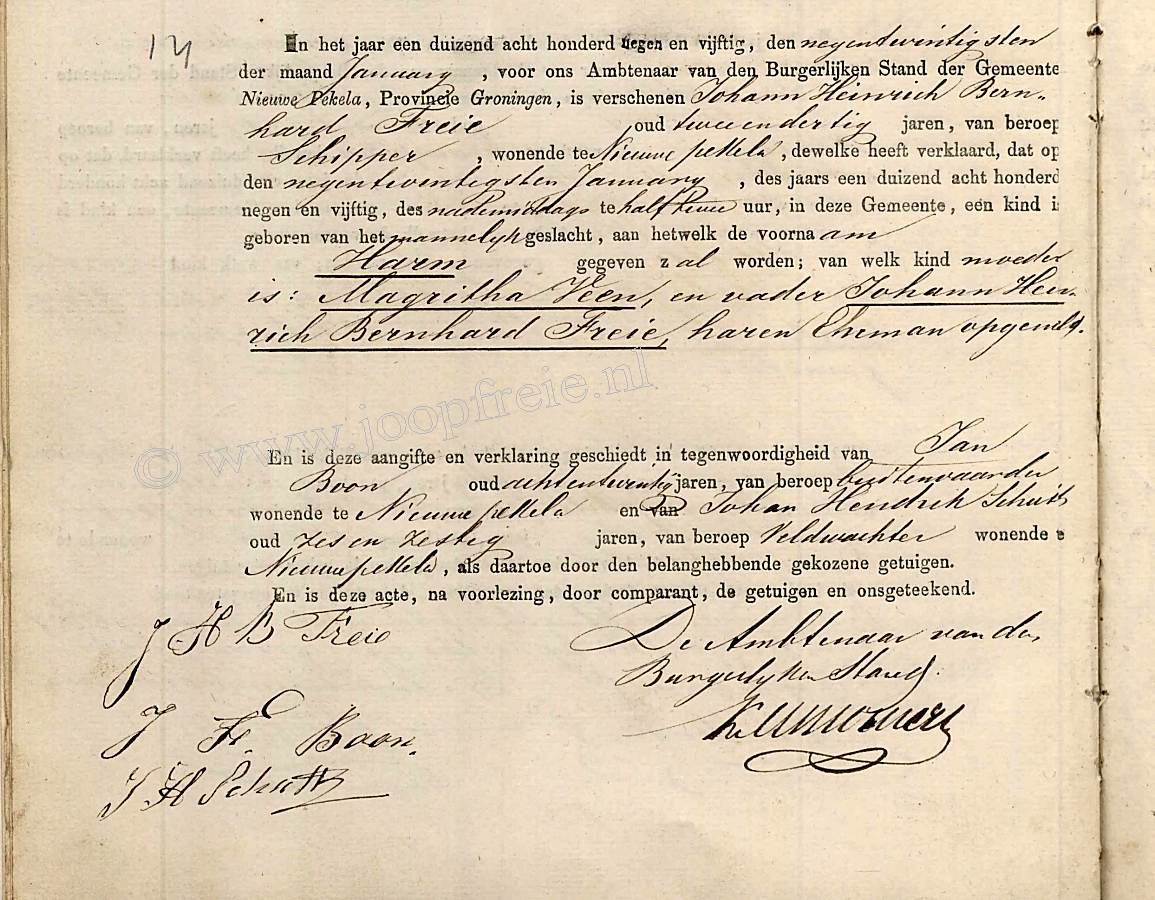 13
In het jaar een duizend acht honderd negen en vijftig, den negentwintigsten
der maand January, voor ons Ambtenaar van den Burgerlijken Stand der Gemeente
Nieuwe Pekela, Provincie Groningen, is verschenen Johann Heinrich Bern-
hard Freie oud twee en dertig jaren, van beroep
Schipper, wonende te Nieuwe pekela, dewelke heeft verklaard, dat op
den negentwintigsten January, des jaars een duizend acht honderd
negen en vijftig, des nademiddags te half twee uur, in deze Gemeente, een kind is
geboren van het mannelyk geslacht, aan hetwelk de voorna am
Harm gegeven z al worden; van welk kind moeder
is: Magritha Veen, en vader Johann Hein-
rich Bernhard Freie, haren Eheman opgemeld.
© www.joopfreie.nl
En is deze aangifte en verklaring geschiedt in tegenwoordigheid van Jan
Boon oud achtentwintig jaren, van beroep buitenvaarder
wonende te Nieuwe pekela en van Johan Hendrik Schutt
oud zes en zestig jaren, van beroep Veldwachter wonende te
Nieuwe pekela, als daartoe door den belanghebbende gekozene getuigen.
En is deze acte, na voorlezing, door comparant, de getuigen en ons geteekend.
J H B Freie
De Ambtenaar van den
Burgerlyken Stand.
J Fr. Boon.
J H Schutt